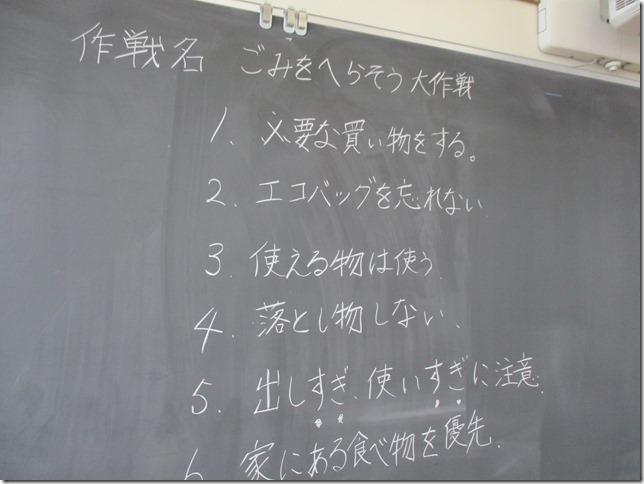 作戦名 ごみをへらそう大作戦
1. 必要な買い物をする。
2. エコバッグを忘れない
3. 使える物は使う.
4. 落とし物しない.
5. 出しすぎ、使いすぎに注意.
6 家にある食べ物を優先.